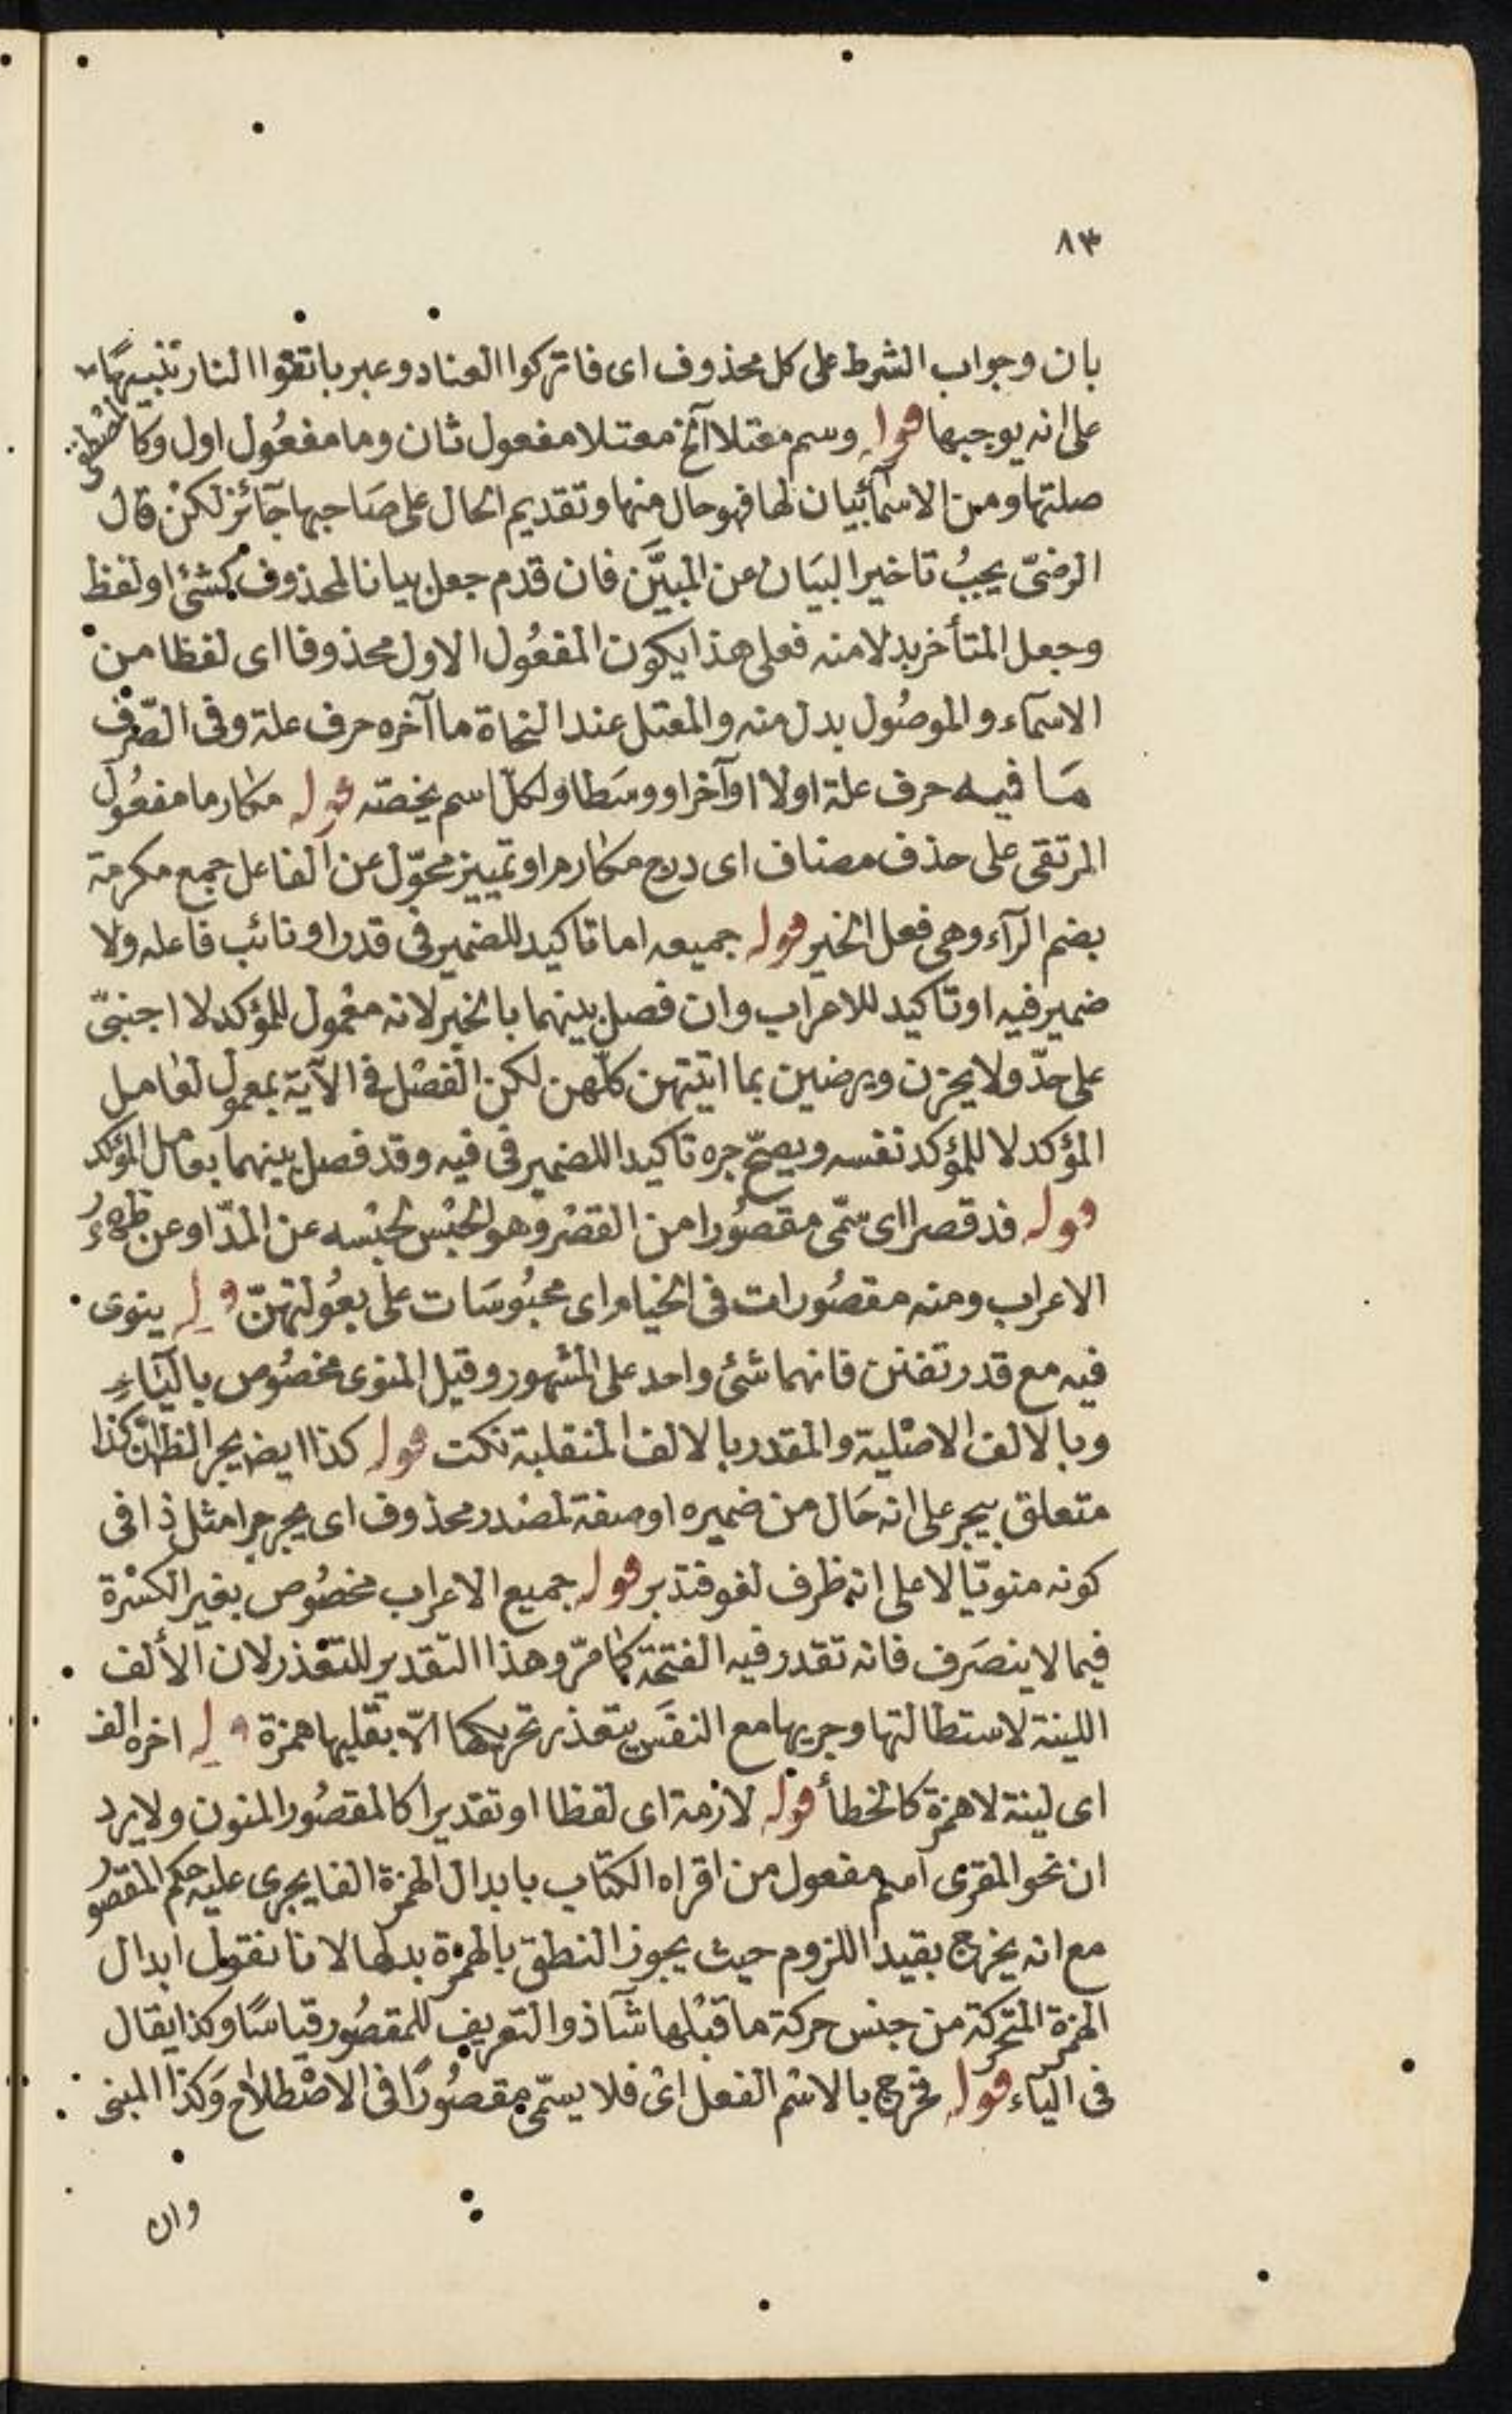 ٨٣
بان وجواب الشرط على كل محذوف اى فاتركوا العناد وعبر باتقوا النار تنبيها
على انه يوجبها قوله وسم معتلا آلخ معتلا مفعول ثان وما مفعُول اول وكالمصطفى
صلتها ومن الاسمآ بيان لها فهو حال منها وتقديم الحال على صَاحبها جآئز لكنْ قال
الرضىّ يجبُ تاخير البيَان عن المبيَّن فان قدم جعل بيانا لمحذوف كشئ او لفظ
وجعل المتأخر بدلا منه فعلى هذا يكون المفعُول الاول محذوفا اى لفظا من
الاسمآء والموصُول بدل منه والمعتل عند النحاة ما آخره حرف علة وفى الصّرف
مَا فيه حرف علة اولا او آخرا ووسَطا ولكلّ اسم يخصّه قوله مكارما مفعُول
المرتقى على حذف مضاف اى درج مكارم او تمييز محوّل عن الفاعل جمع مكرمة
بضم الرآء وهى فعل الخير قوله جميعه اما تاكيد للضمير فى قدرا ونائب فاعله ولا
ضمير فيه او تاكيد للاعراب وان فصل بينهما بالخبر لانه معمول للمؤكد لا اجنبىّ
على حدّ ولا يحزن ويرضين بما اتيتهن كلّهن لكن الفصْل فى الآية بمعمول لعامل
المؤكد لا للمؤكد نفسه ويصحّ جره تاكيدا للضمير فى فيه وقد فصل بينهما بعامل المؤكد
قوله قد قصرا اى سمّى مقصُورا من القصْر وهو الحبْس لحبْسه عن المدّ او عن ظهُور
الاعراب ومنه مقصُورات فى الخيام اى محبُوسَات على بعُولتهنّ قوله ينوى
فيه مع قدر تفنن فانهما شئ واحد على المشهور وقيل المنوى مخصُوص باليَاءِ
وبالالف الاصْلية والمقدر بالالف المنقلبة نكت قوله كذا ايضا يجر الظ ان كذا
متعلق بيجر على انه حَال من ضميره او صفة لمصْدر محذوف اى يجر جرا مثل ذا فى
كونه منويّا لا على انه ظرف لغو فتدبر قوله جميع الاعراب مخصُوص بغير الكسْرة
فيما لا ينصَرف فانه تقدر فيه الفتحة كما مرّ وهذا التقدير للتعذر لان الألف
اللينة لاستطالتها وجريها مع النفَس يتعذر تحريكها الاّ بقلبها همزة قوله اخره الف
اى لينة لا همزة كالخطأ قوله لازمة اى لفظا او تقديرا كالمقصُور المنون ولا يرد
ان نحو المقرى اسم مفعول من اقراه الكتاب بابدال الهمزة الفا يجرى عليه حكم المقصُور
مع انه يخرج بقيد اللزوم حيث يجوز النطق بالهمزة بدلها لانا نقول ابدال
الهمزة المتحركة من جنس حركة ما قبْلها شآذ والتعريف للمقصُور قياسًا وكذا يقال
فى اليآء قوله فخرج بالاسْم الفعل اى فلا يسمّى مقصُورًا فى الاصْطلاح وَكذا المبنى
وان